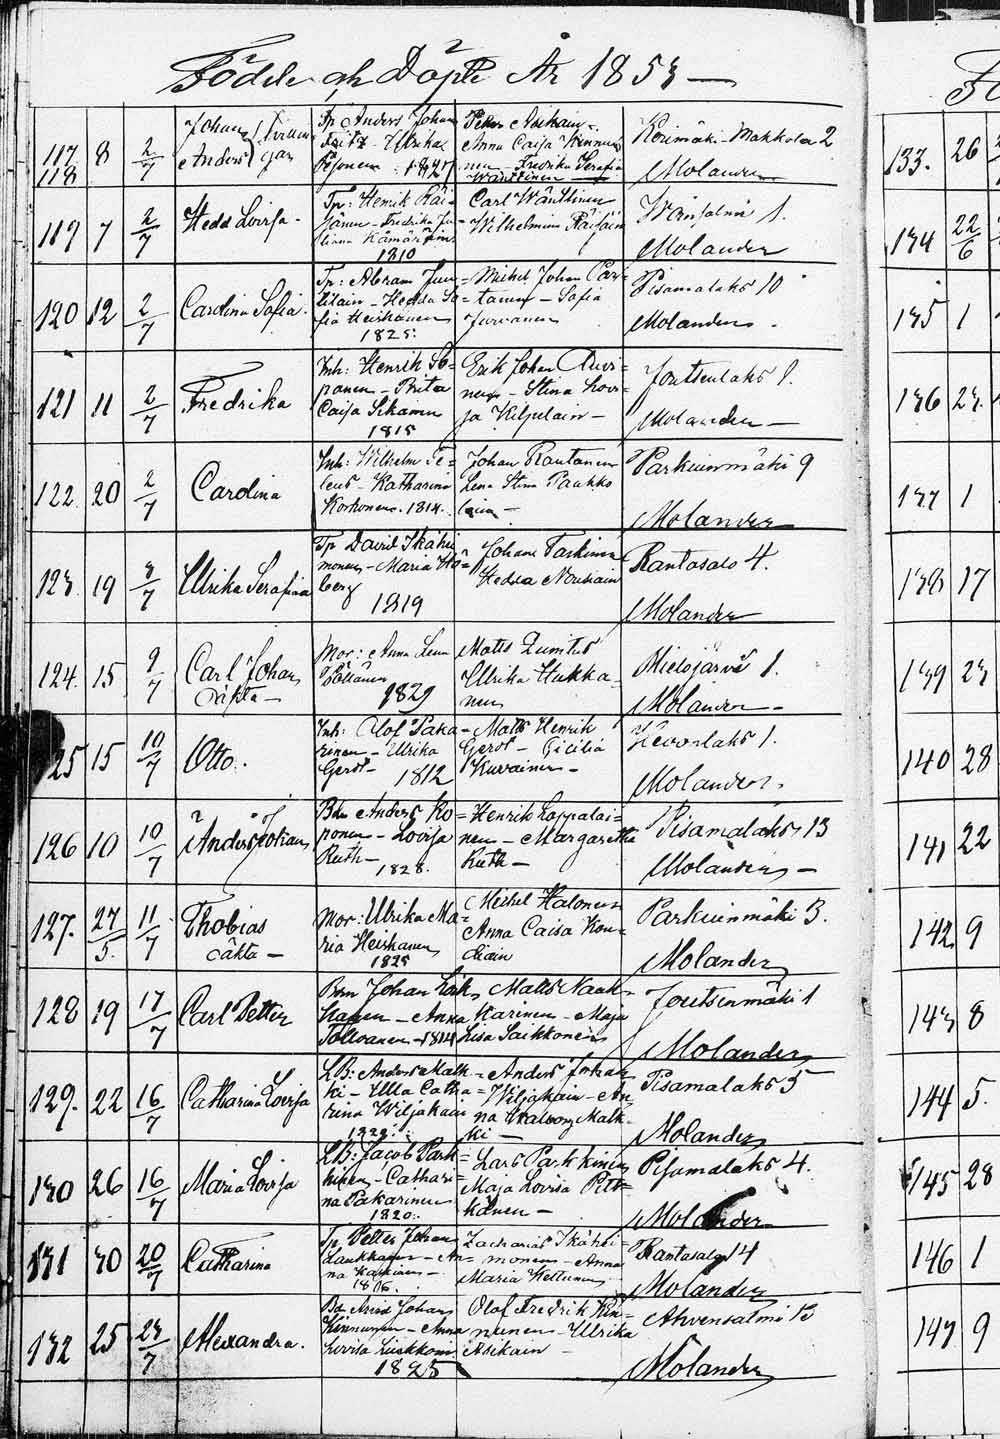 Födde och Döpte År 1853
117 8 2/7 Johan
118 Anders
Tp Anders Johan
Ulrika
1827
Anna Caisa Kinnu-
nen - Fredrika Serafia
Wänttinen
Koimäki - Makkola 2
Molander
119 7 2/7 Hedd Lovisa
Tp: Henrik Räi-
Fredrika Ju-
liana Kämäräinen
1810
Carl Wänttinen
Wilhelmina Räisäin
1.
Molander
120 12 2/7 Carolina Sofia
Tp: Abram Juu-
Hedda So-
fia Heiskanen
1825.
Michel Johan Par-
tanen - Sofia
Jurvanen
Pisamalaks 10
Molander
121 11 2/7 Fredrika
Inh: Henrik So-
panen - Brita
Caisa Sikanen
1815
Erik Johan Auvi-
nen - Stina Lovi-
sa Kilpelain -
Joutsenlaks 1.
Molander
122 20 2/7 Carolina
Inh: Wilhelm
Katharina
Korhonen. 1814.
Johan Rautanen
Lena Stina Paukko
lain -
Parkuinmäki 9
Molander
123. 19 8/7 Ulrika Serafia
Tp David Ikähei
monen - Maria Hö-
berg
1819
Johan Taskinen
Hedda Nousiain
Rantasalo 4.
Molander
124. 15 9/7 Carl Johan
oäkta -
Mor: Anna Lena
Pöllänen
1829
Matts
Ulrika Hukka-
nen
Hielojärvi 1.
Molander
125 15 10/7 Otto.
Inh: Olof Paka-
rinen - Ulrika
Gerot -
1812
Matts Henrik
Gerot - Cicilia
Kuvainen -
1.
Molander
126 10 10/7 Anders Johan
Bdn Anders Ko-
ponen - Lovisa
Ruth -
1828.
Henrik Loppalai-
nen - Margaretha
Ruth -
Pisamalaks 13
Molander
127. 27/5. 11/7 Thobias
oäkta -
Mor: Ulrika Ma-
ria Heiskanen
1825
Michel Halonen
Anna Caisa Kou-
Parkuinmäki 3.
Molander
128 19 17/7 Carl Petter
Bdn Johan
Anna
Tolvanen - 1814
Matts Nauk-
karinen - Maja
Lisa Saikkonen
Joutsenmäki 1
Molander
129. 22 16/7 Catharina Lovisa
LB: Anders Malk-
ki - Ulla Catha-
rina Wiljakain
1829.
Anders Johan
Wiljakain - An-
na Walborg Malk-
ki -
Pisamalaks 5
Molander
130 26 16/7 Maria Lovisa
LB: Jacob Park-
kinen - Cathari-
na Pakarinen
1820.
Lars Parkkinen
Maja Lovisa Pitk-
känen -
Pisamalaks 4.
Molander
131 30 20/7 Catharina
Tp Petter Johan
Laukkanen - An-
na
1816.
Zacharias Ikähei-
monen - Anna
Maria Kettunen
Rantasalo 14
Molander
132 25 23/7 Alexandra.
Bd Arvid Johan
Kinnunen - Anna
Lovisa Liukkonen
1825
Olof Fredrik Kin-
nunen - Ulrika
Asikain -
Ahvensalmi 13
Molander
133. 26
134 22/6
135 1
136 23.
137 1
138 17
139 23
140 28
141 22
142 9
143 8
144 5.
145 28
146 1
147 9